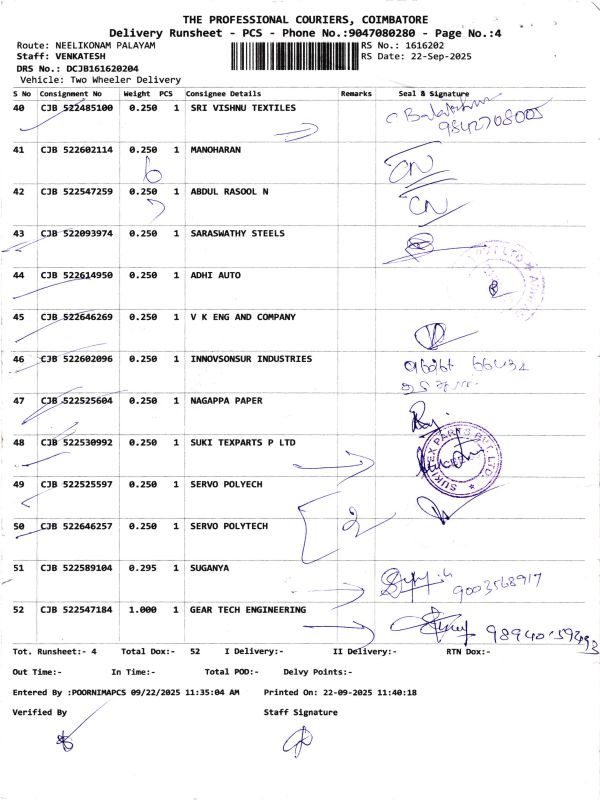 THE PROFESSIONAL COURIERS, COIMBATORE
Delivery Runsheet - PCS - Phone No.:9047080280 - Page No.:4
Route: NEELIKONAM PALAYAM RS No.: 1616202
Staff: VENKATESH RS Date: 22-Sep-2025
DRS No.: DCJB161620204
Vehicle: Two Wheeler Delivery
S No Consignment No Weight PCS Consignee Details Remarks Seal & Signature
40 CJB 522485100 0.250 1 SRI VISHNU TEXTILES
9842708005
41 CJB 522602114 0.250 1 MANOHARAN
CN
42 CJB 522547259 0.250 1 ABDUL RASOOL N
CN
43 CJB 522093974 0.250 1 SARASWATHY STEELS
44 CJB 522614950 0.250 1 ADHI AUTO
45 CJB 522646269 0.250 1 V K ENG AND COMPANY
46 CJB 522602096 0.250 1 INNOVSONSUR INDUSTRIES
47 CJB 522525604 0.250 1 NAGAPPA PAPER
48 CJB 522530992 0.250 1 SUKI TEXPARTS P LTD
49 CJB 522525597 0.250 1 SERVO POLYECH
50 CJB 522646257 0.250 1 SERVO POLYTECH
2
51 CJB 522589104 0.295 1 SUGANYA
9003568917
52 CJB 522547184 1.000 1 GEAR TECH ENGINEERING
Tot. Runsheet:- 4 Total Dox:- 52 I Delivery:- II Delivery:- RTN Dox:-
Out Time:- In Time:- Total POD:- Delvy Points:-
Entered By :POORNIMAPCS 09/22/2025 11:35:04 AM Printed On: 22-09-2025 11:40:18
Verified By Staff Signature